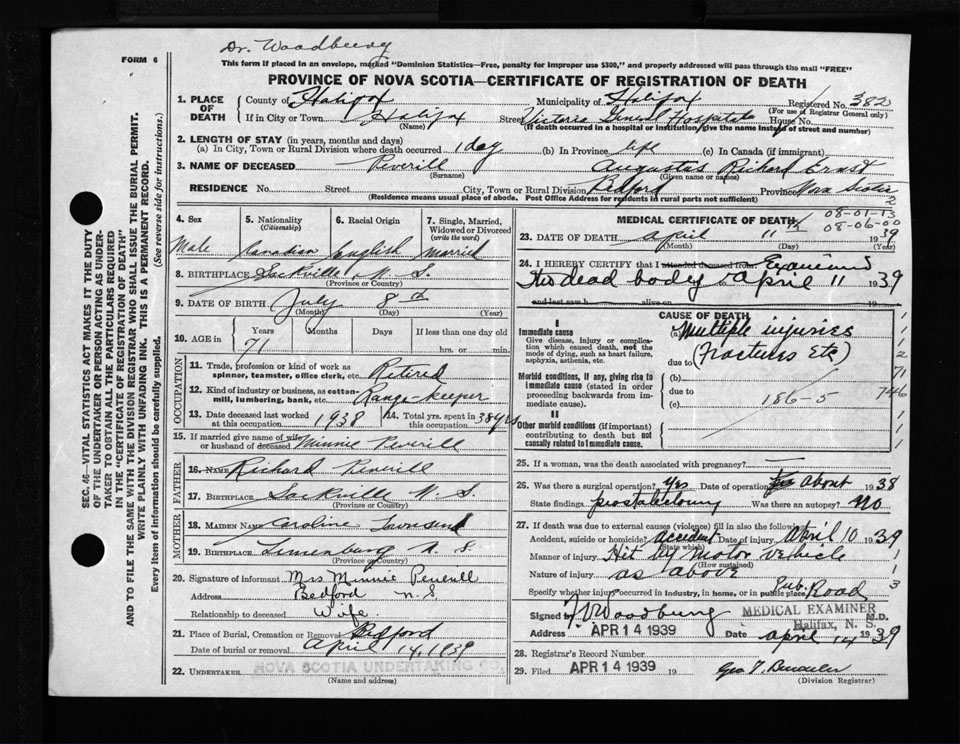 Dr. Woodbury
FORM 6
This form if placed in an envelope, marked "Dominion Statistics—Free, penalty for improper use $300," and properly addressed will pass through the mail "FREE"
PROVINCE OF NOVA SCOTIA—CERTIFICATE OF REGISTRATION OF DEATH
SEC. 46—VITAL STATISTICS ACT MAKES IT THE DUTY
OF THE UNDERTAKER OR PERSON ACTING AS UNDER-
TAKER TO OBTAIN ALL THE PARTICULARS REQUIRED
IN THE "CERTIFICATE OF REGISTRATION OF DEATH"
AND TO FILE THE SAME WITH THE DIVISION REGISTRAR WHO SHALL ISSUE THE BURIAL PERMIT.
WRITE PLAINLY WITH UNFADING INK. THIS IS A PERMANENT RECORD.
Every item of information should be carefully supplied. (See reverse side for instructions.)
1. PLACE OF DEATH County of Halifax Municipality of Halifax Registered No. 382
(For use of Registrar General only)
If in City or Town Halifax Street Victoria General Hospital House No.
(Name) (If death occurred in a hospital or institution give the name instead of street and number)
2. LENGTH OF STAY (in years, months and days)
(a) In City, Town or Rural Division where death occurred 1 day (b) In Province life (c) In Canada (if immigrant)
3. NAME OF DECEASED Reverill Augustus Richard Ernst
(Surname) (Given name or names)
RESIDENCE No. Street City, Town or Rural Division Bedford Province Nova Scotia
(Residence means usual place of abode. Post Office Address for residents in rural parts not sufficient)
4. Sex 5. Nationality (Citizenship) 6. Racial Origin 7. Single, Married, Widowed or Divorced (write the word)
Male Canadian English Married
8. BIRTHPLACE Sackville, N. S.
(Province or Country)
9. DATE OF BIRTH July 8th
(Month) (Day) (Year)
10. AGE in Years Months Days If less than one day old
71 hrs. or min.
OCCUPATION
11. Trade, profession or kind of work as spinner, teamster, office clerk, etc. Retired
12. Kind of industry or business, as cotton mill, lumbering, bank, etc. Range-keeper
13. Date deceased last worked at this occupation 1938 14. Total yrs. spent in this occupation 38 yrs
15. If married give name of wife or husband of deceased Minnie Reverill
FATHER
16. NAME Richard Reverill
17. BIRTHPLACE Sackville N. S.
(Province or Country)
MOTHER
18. MAIDEN NAME Caroline Townsend
19. BIRTHPLACE Lunenburg N. S.
(Province or Country)
20. Signature of informant Mrs Minnie Reverill
Address Bedford N. S.
Relationship to deceased Wife
21. Place of Burial, Cremation or Removal Bedford
Date of burial or removal April 14, 1939
22. UNDERTAKER NOVA SCOTIA UNDERTAKING CO.
(Name and address)
MEDICAL CERTIFICATE OF DEATH
08-01-13
08-06-00
23. DATE OF DEATH April 11th 1939
(Month) (Day) (Year)
24. I HEREBY CERTIFY that I attended deceased from Examined
the dead body April 11 1939
and last saw h alive on 19
CAUSE OF DEATH
I
Immediate cause
Give disease, injury or complication which caused death, not the mode of dying, such as heart failure, asphyxia, asthenia, etc.
(a) Multiple injuries
due to (Fractures Etc)
Morbid conditions, if any, giving rise to immediate cause (stated in order proceeding backwards from immediate).
(b)
due to
(c) 186-5
71
746
II
Other morbid conditions (if important) contributing to death but not causally related to immediate cause.
25. If a woman, was the death associated with pregnancy? —
26. Was there a surgical operation? Yes Date of operation about 1938
State findings prostatectomy Was there an autopsy? No
27. If death was due to external causes (violence) fill in also the following:
Accident, suicide or homicide? Accident Date of injury April 10 1939
(State which)
Manner of injury Hit by Motor Vehicle
(How sustained)
Nature of injury as above
Specify whether injury occurred in industry, in home, or in public place Pub. Road
Signed by Woodbury M.D.
MEDICAL EXAMINER
Halifax, N. S.
Address APR 14 1939 Date April 14 1939
28. Registrar's Record Number
29. Filed APR 14 1939 19
(Division Registrar)